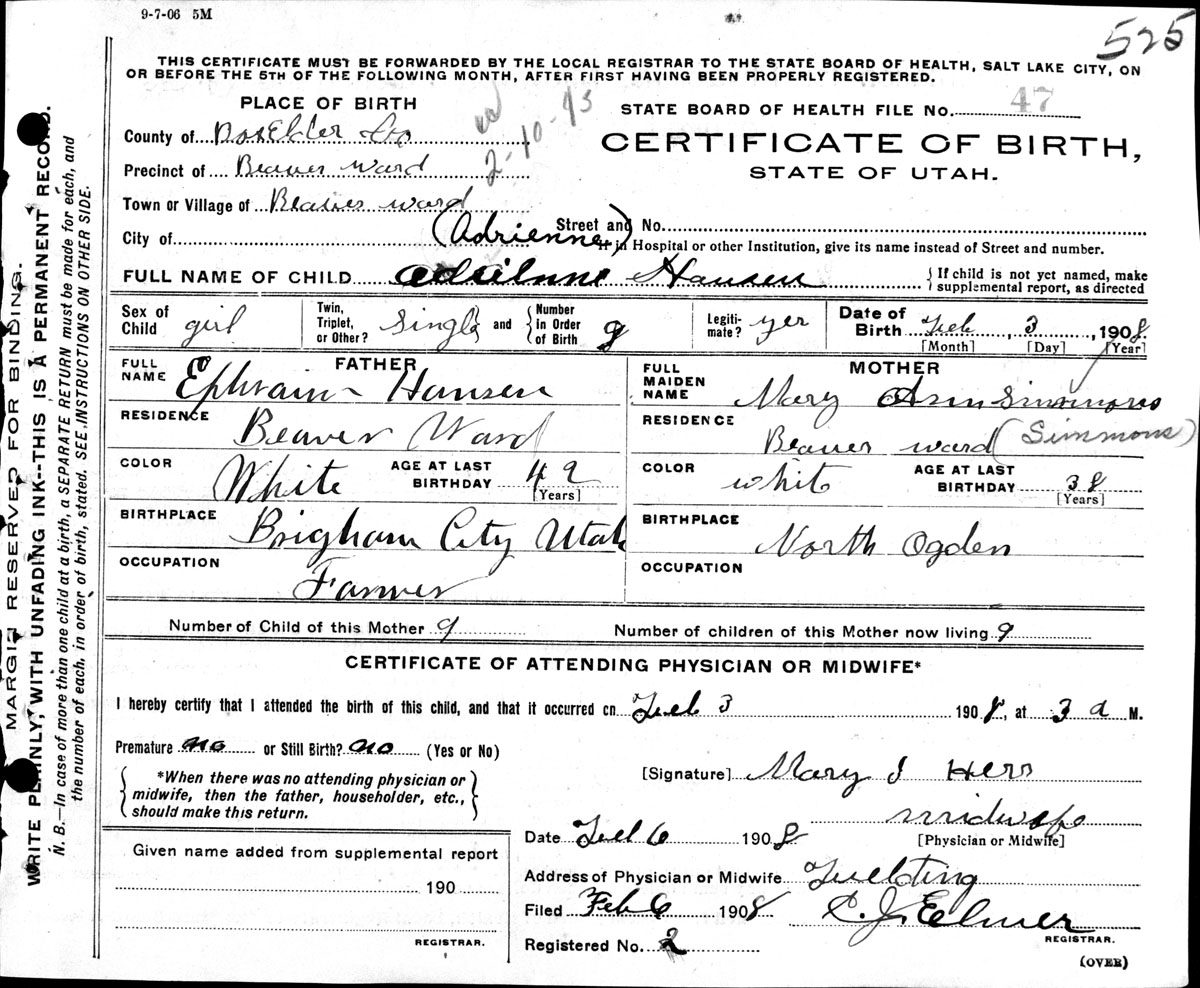 9-7-06 5M
525
THIS CERTIFICATE MUST BE FORWARDED BY THE LOCAL REGISTRAR TO THE STATE BOARD OF HEALTH, SALT LAKE CITY, ON
OR BEFORE THE 5TH OF THE FOLLOWING MONTH, AFTER FIRST HAVING BEEN PROPERLY REGISTERED.
PLACE OF BIRTH
STATE BOARD OF HEALTH FILE No. 47
County of BoxElder Co
2-10-43
CERTIFICATE OF BIRTH,
STATE OF UTAH.
Precinct of Beaver Ward
Town or Village of Beaver ward
Street and No.
City of
(Adrienne)
If in Hospital or other Institution, give its name instead of Street and number.
FULL NAME OF CHILD Hansen
If child is not yet named, make
supplemental report, as directed
Sex of Child girl
Twin, Triplet, or Other? Single and Number in Order of Birth 9
Legiti-mate? yes
Date of Birth Feb 3, 1908
[Month] [Day] [Year]
FATHER
FULL NAME Ephraim Hansen
RESIDENCE Beaver Ward
COLOR White AGE AT LAST BIRTHDAY 42
[Years]
BIRTHPLACE Brigham City Utah
OCCUPATION Farmer
MOTHER
FULL MAIDEN NAME Mary Ann Simmons
RESIDENCE Beaver ward (Simmons)
COLOR white AGE AT LAST BIRTHDAY 38
[Years]
BIRTHPLACE North Ogden
OCCUPATION
Number of Child of this Mother 9
Number of children of this Mother now living 9
CERTIFICATE OF ATTENDING PHYSICIAN OR MIDWIFE*
I hereby certify that I attended the birth of this child, and that it occurred on Feb 3 1908, at 3 a M.
Premature no or Still Birth? no (Yes or No)
*When there was no attending physician or
midwife, then the father, householder, etc.,
should make this return.
[Signature] Mary J Hess
midwife
[Physician or Midwife]
Date Feb 6 1908
Given name added from supplemental report
190
REGISTRAR.
Address of Physician or Midwife Fielding
Filed Feb 6 1908
REGISTRAR.
Registered No. 2
(OVER)
MARGIN RESERVED FOR BINDING.
WRITE PLAINLY, WITH UNFADING INK--THIS IS A PERMANENT RECORD.
N. B.—In case of more than one child at a birth, a SEPARATE RETURN must be made for each, and
the number of each, in order of birth, stated. SEE INSTRUCTIONS ON OTHER SIDE.